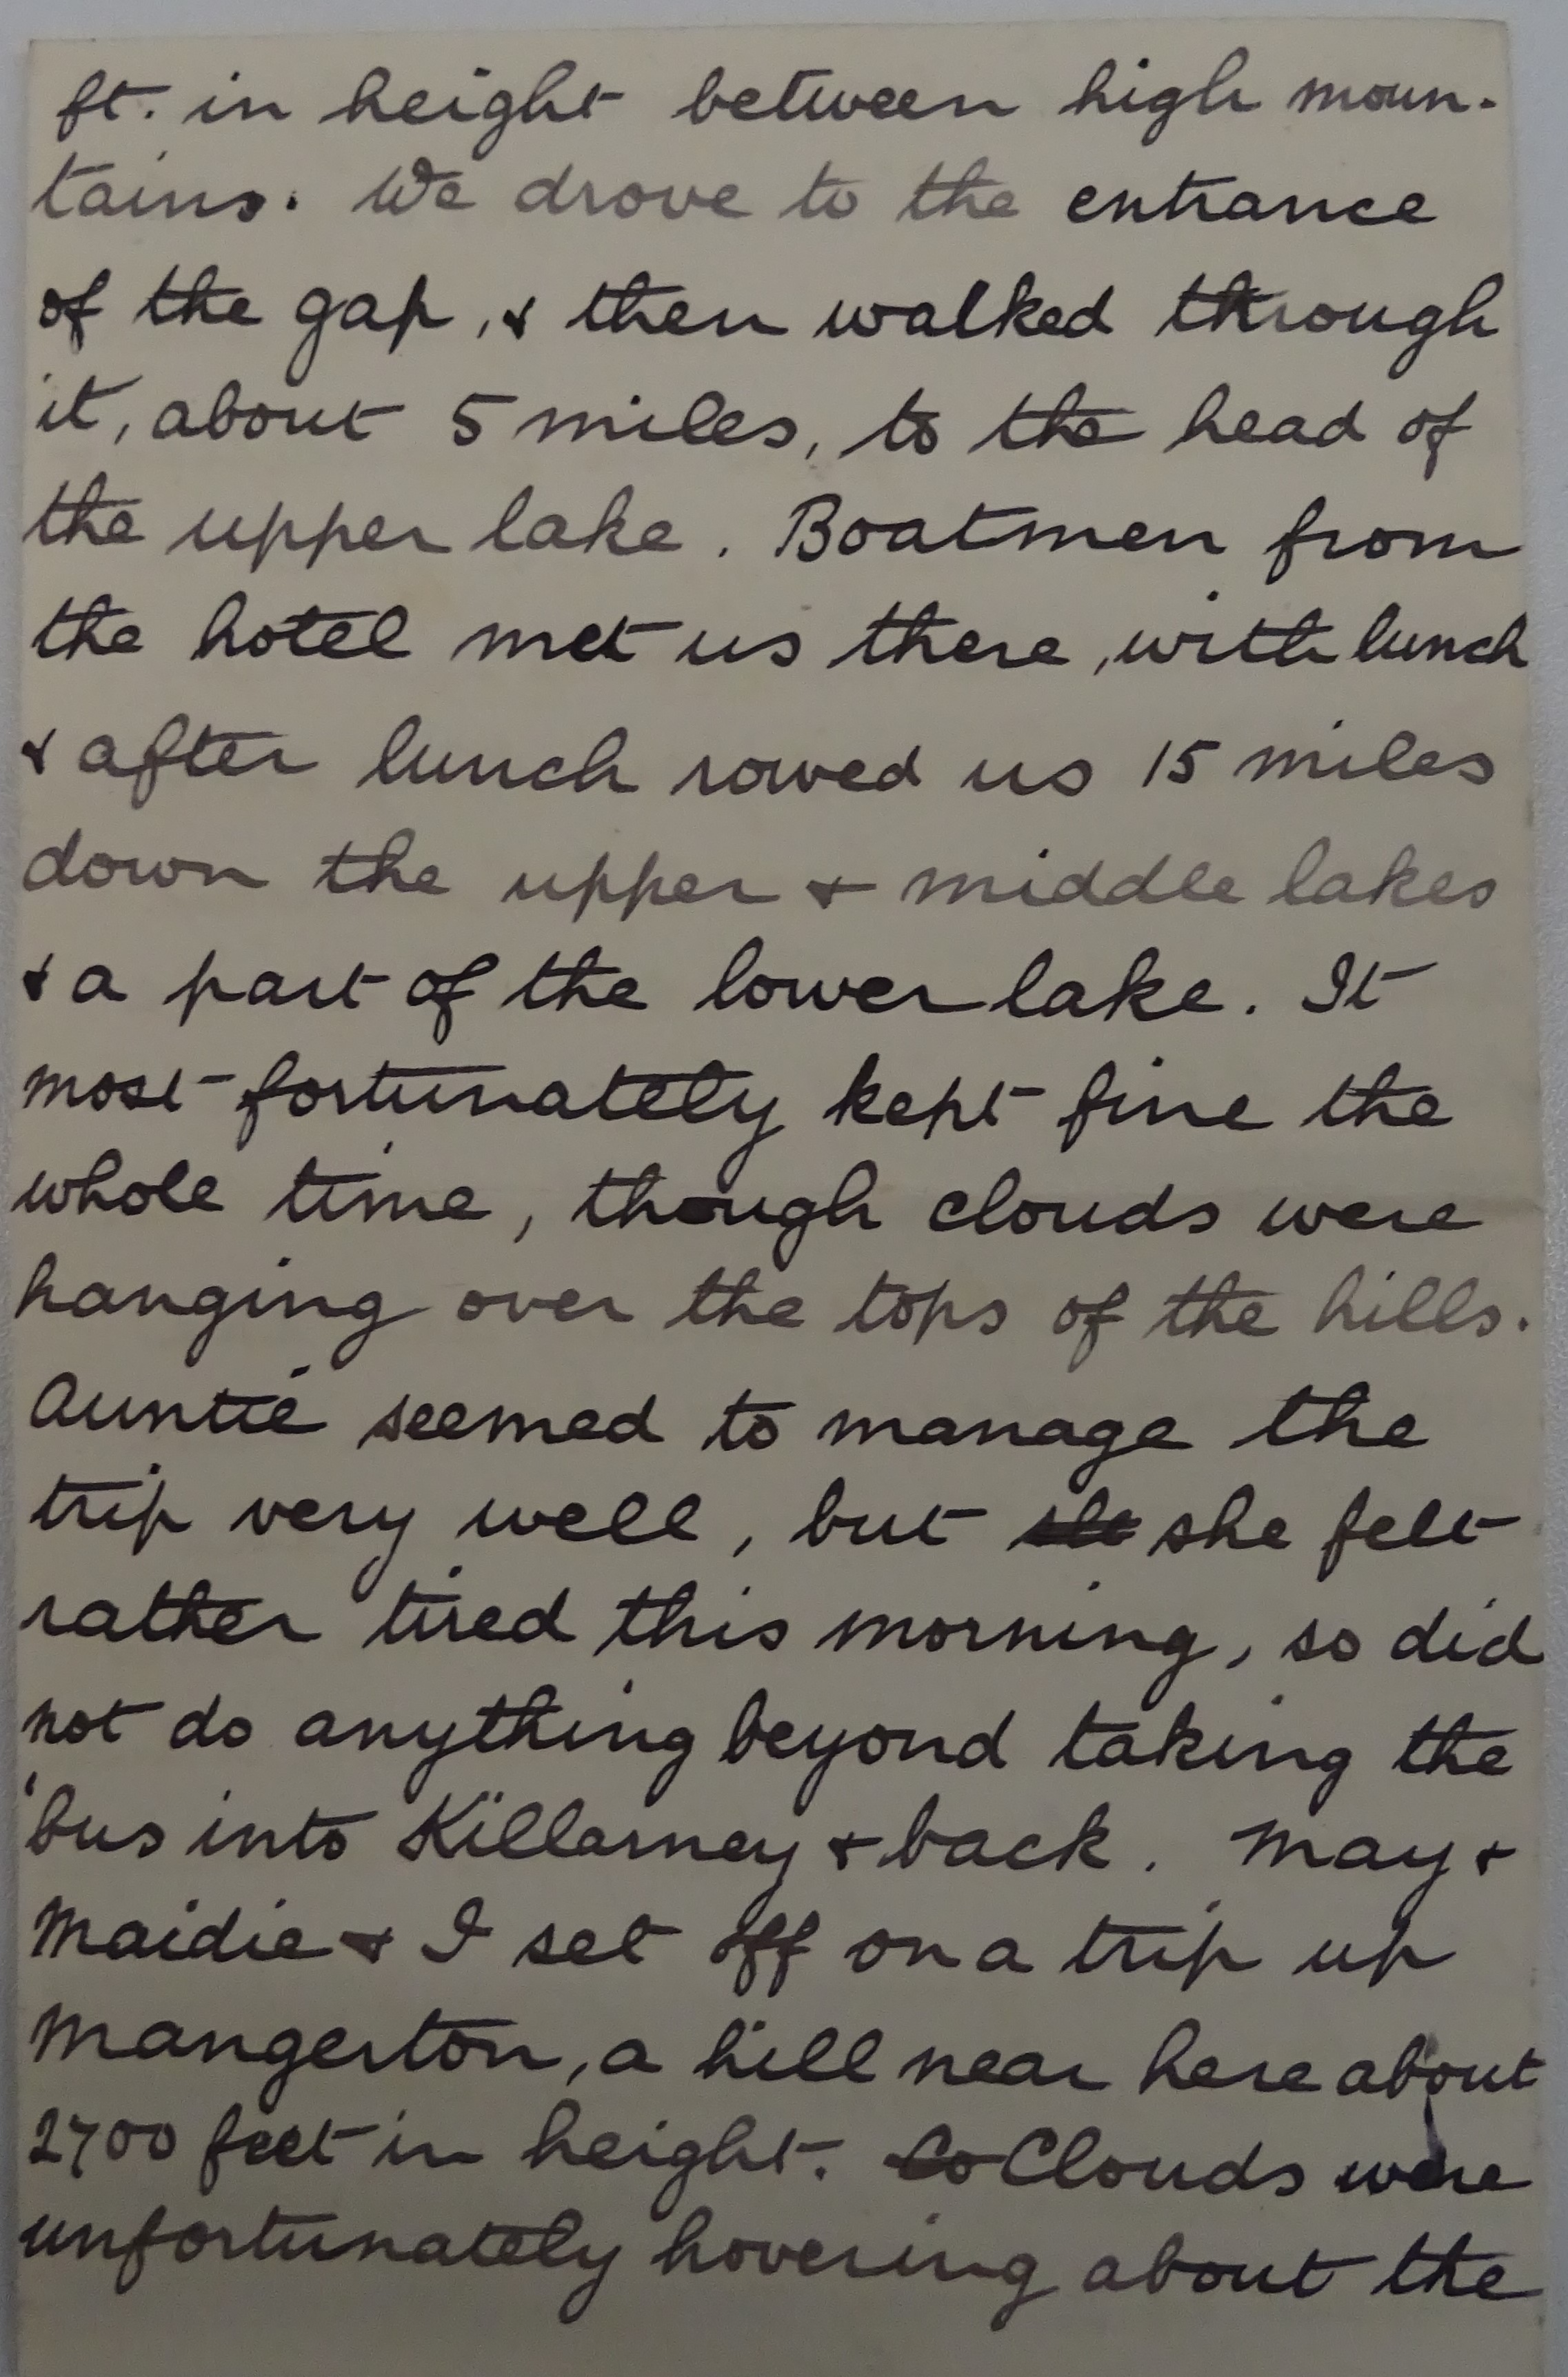 ft. in height between high moun-
tains. We drove to the entrance
of the gap, & then walked through
it, about 5 miles, to the head of
the upper lake. Boatmen from
the hotel met us there, with lunch
& after lunch rowed us 15 miles
down the upper & middle lakes
& a part of the lower lake. It
most fortunately kept fine the
whole time, though clouds were
hanging over the tops of the hills.
Auntie seemed to manage the
trip very well, but she felt
rather tired this morning, so did
not do anything beyond taking the
'bus into Killarney & back. May &
Maidie & I set off on a trip up
Mangerton, a hill near here about
2700 feet in height. Co Clouds were
unfortunately hovering about the